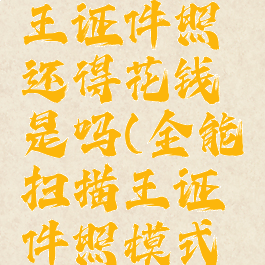 王证件照
还得花钱
是吗(全能
扫描王证
件照模式